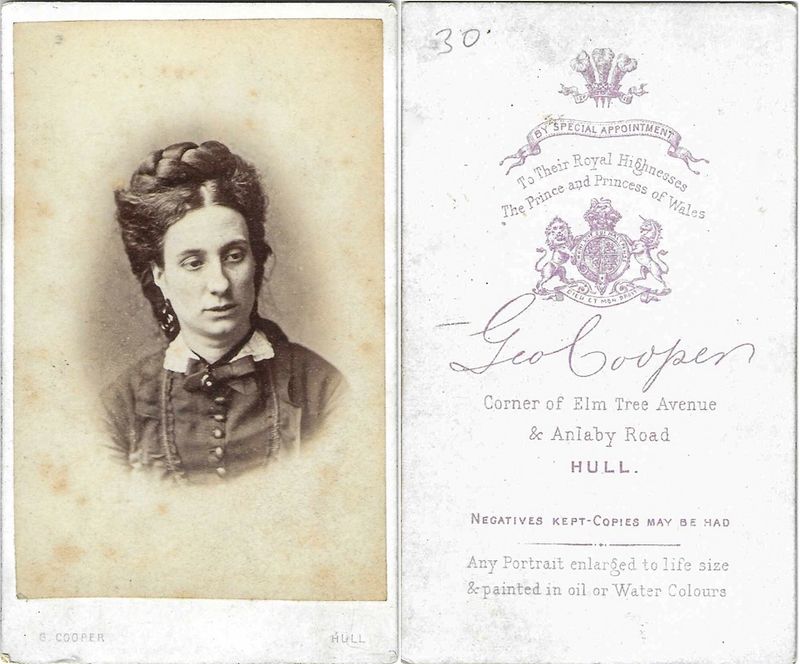 G. COOPER HULL
30
BY SPECIAL APPOINTMENT
To Their Royal Highnesses
The Prince and Princess of Wales
DIEU ET MON DROIT
Geo Cooper
Corner of Elm Tree Avenue
& Anlaby Road
HULL.
NEGATIVES KEPT-COPIES MAY BE HAD
Any Portrait enlarged to life size
& painted in oil or Water Colours